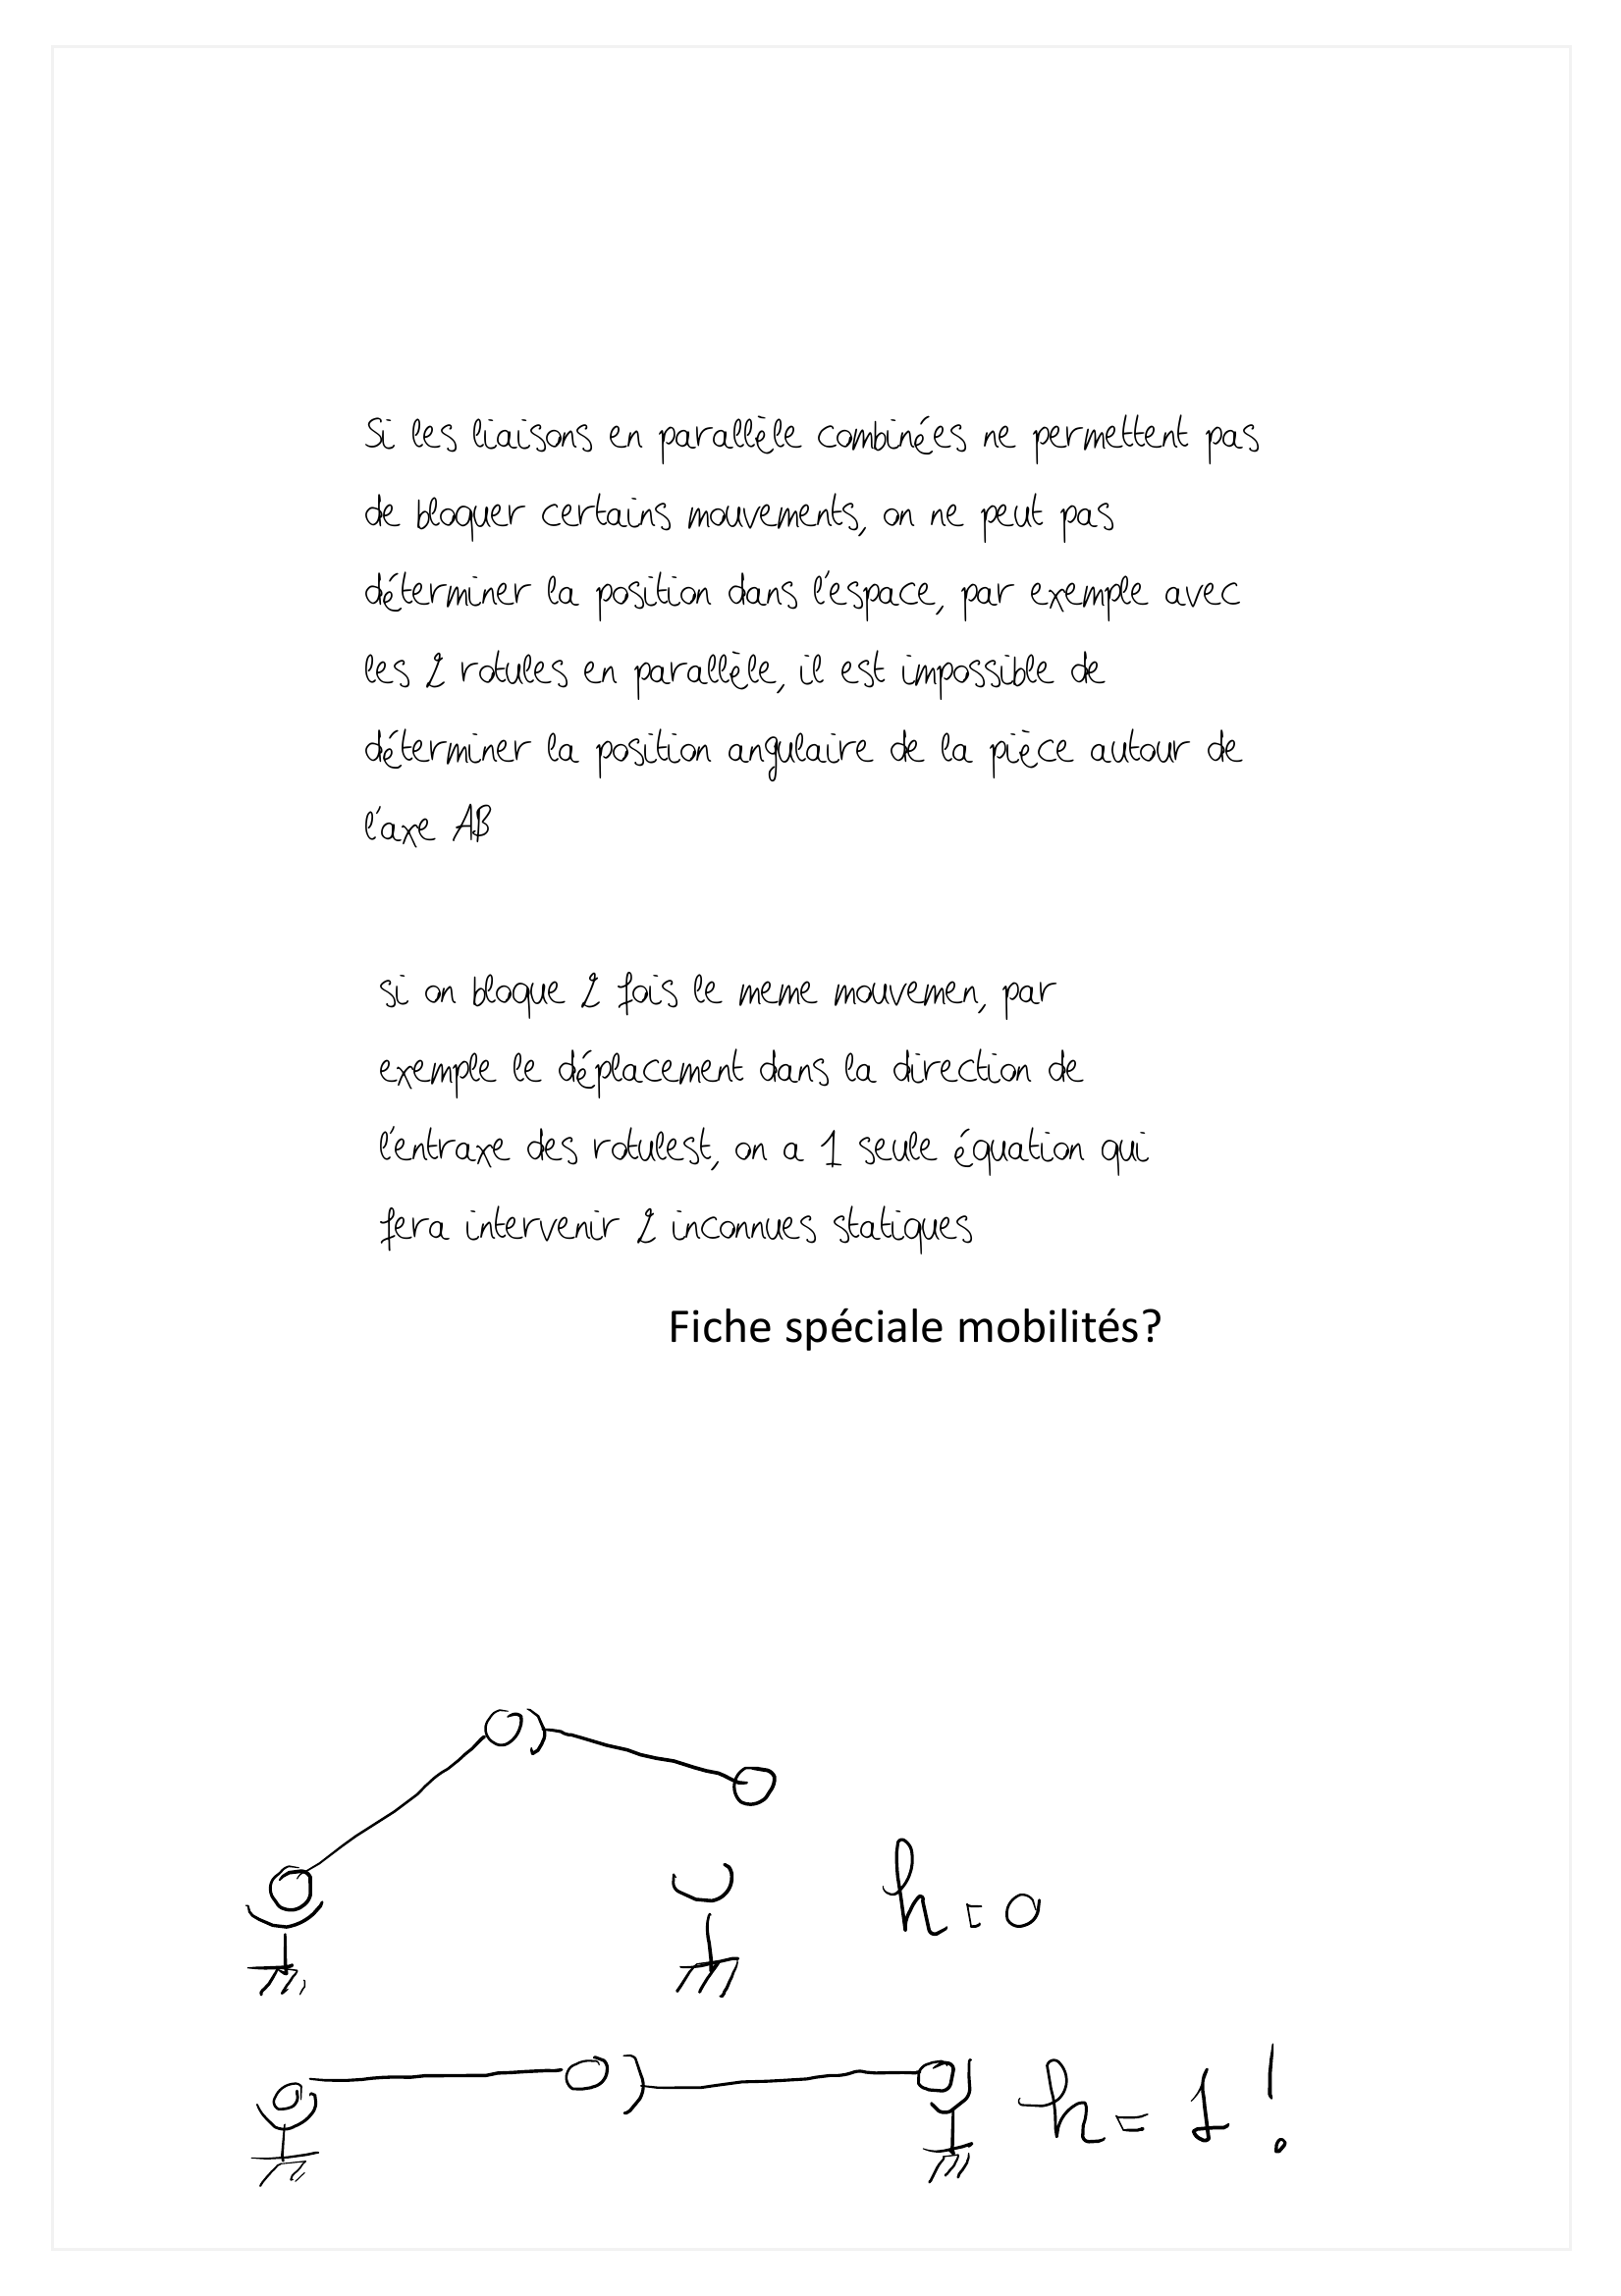 Si les liaisons en parallèle combinées ne permettent pas
de bloquer certains mouvements, on ne peut pas
déterminer la position dans l'espace, par exemple avec
les 2 rotules en parallèle, il est impossible de
déterminer la position angulaire de la pièce autour de
l'axe AB
si on bloque 2 fois le meme mouvemen, par
exemple le déplacement dans la direction de
l'entraxe des rotulest, on a 1 seule équation qui
fera intervenir 2 inconnues statiques
Fiche spéciale mobilités?
h=0
h=1!